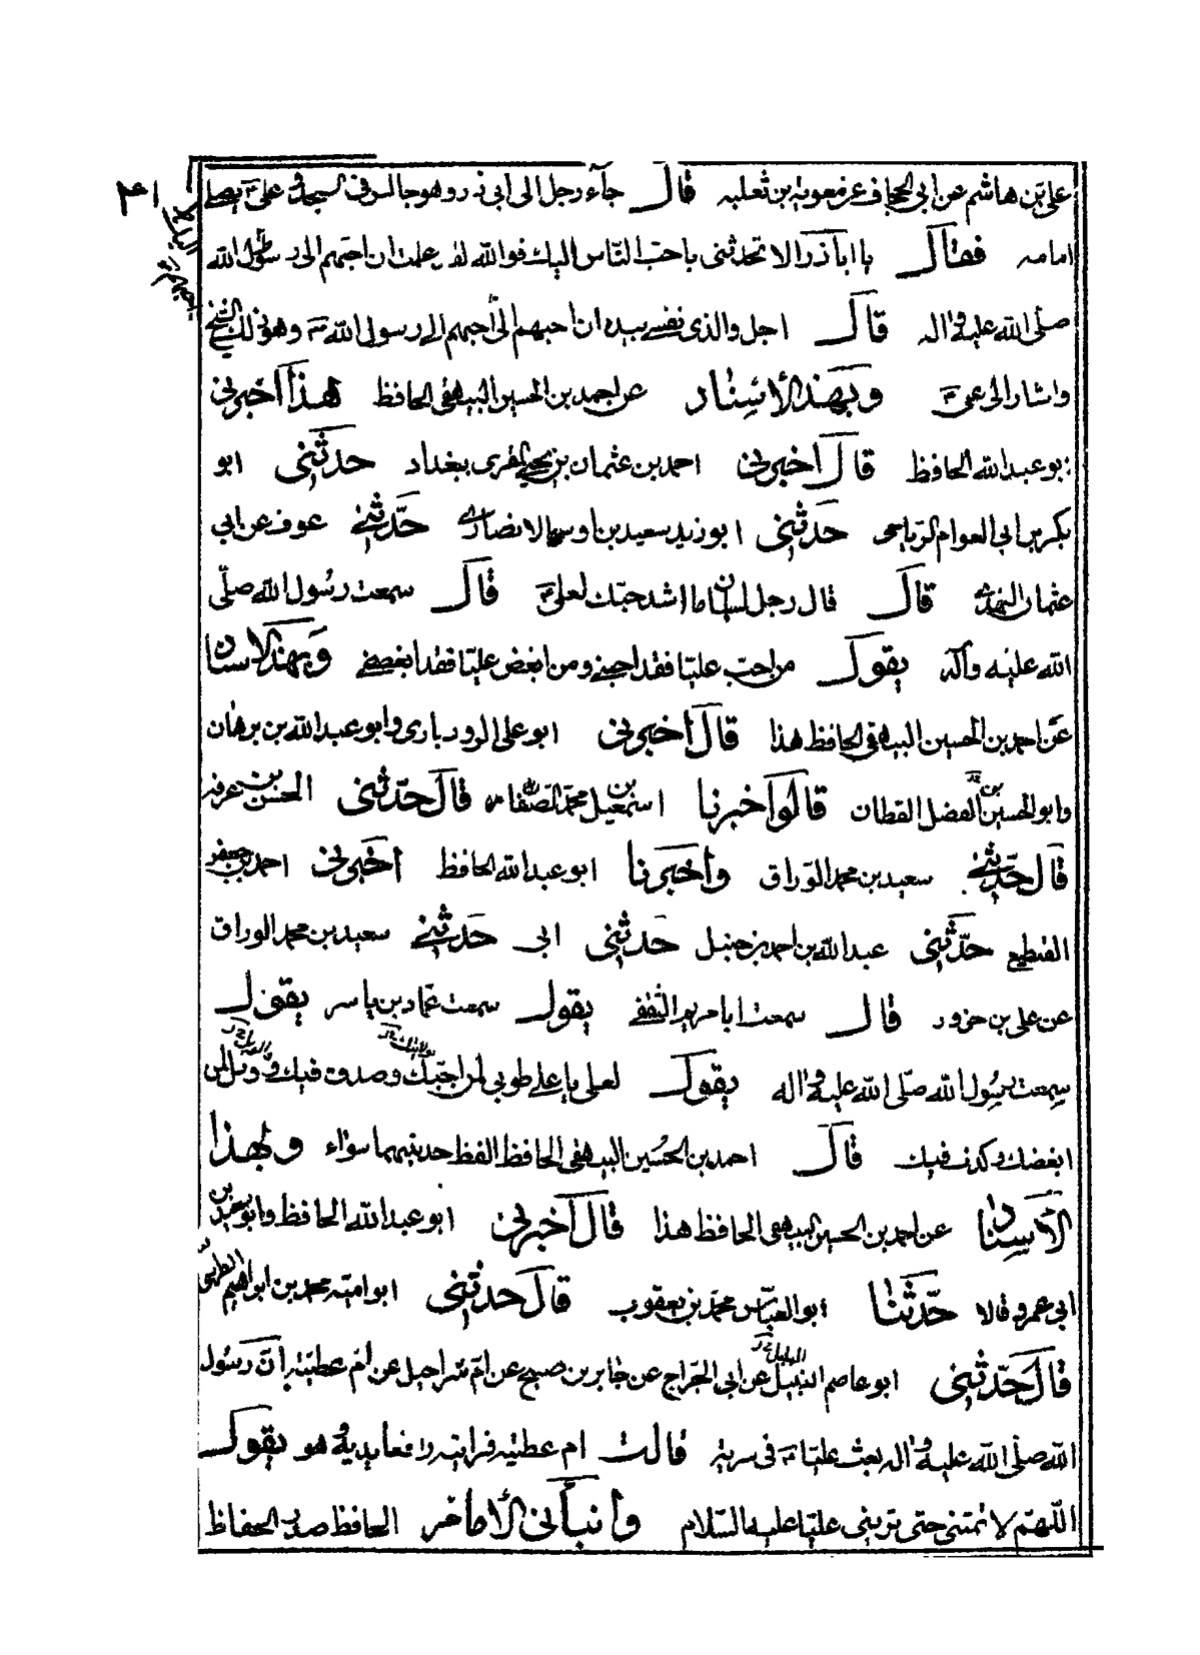 ۴۱
علی بن هاشم عن ابی الجحاف عن معویة بن ثعلبه قال جآء رجل الی ابی ذر و هو جالس فی المسجد و علی ع یصلی
امامه فقال یا اباذر الا تحدثنی باحب الناس الیك فوالله لقد علمت ان احبهم الی رسول الله
صلی الله علیه و اله قال اجل والذی نفسی بیده ان احبهم الی احبهم الی رسول الله ص وهو ذلك الشیخ
واشار الی علی ع وبهذا الأسناد عن احمد بن الحسین البیهقی الحافظ هذا أخبرنی
ابوعبدالله الحافظ قال أخبرنی احمد بن عثمان بن یحیی المقری ببغداد حدثنی ابو
بکر بن ابی العوام الریاحی حدثنی ابوزید سعید بن اوس الانصاری حدثنی عوف عن ابی
عثمان النهدی قال قال رجل لسلمان ما اشد حبك لعلی ع قال سمعت رسول الله صلی
الله علیه وآله یقول من احب علیا فقد احبنی ومن ابغض علیا فقد ابغضنی وبهذا الاسناد
عن احمد بن الحسین البیهقی الحافظ هذا قال أخبرنی ابوعلی الرودباری وابوعبدالله بن برهان
وابوالحسین بن الفضل القطان قالوا أخبرنا اسمعیل بن محمد الصفار قال حدثنی الحسن بن عرفه
قال حدثنی سعید بن محمد الوراق وأخبرنا ابوعبدالله الحافظ أخبرنی احمد بن جعفر
القطیعی حدثنی عبدالله بن احمد بن حنبل حدثنی ابی حدثنی سعید بن محمد الوراق
عن علی بن حزور قال سمعت ابا مریم الثقفی یقول سمعت عمار بن یاسر یقول
سمعت رسول الله صلی الله علیه و اله یقول لعلی یا علی طوبی لمن احبك وصدق فیك و ویل لمن
ابغضك وکذب فیك قال احمد بن الحسین البیهقی الحافظ لفظ حدیثهما سواء وبهذا
الأسناد عن احمد بن الحسین البیهقی الحافظ هذا قال أخبرنی ابوعبدالله الحافظ وابوسعید بن
ابی عمرو قالا حدثنا ابوالعباس محمد بن یعقوب قال حدثنی ابوامیة محمد بن ابراهیم الطرسوسی
قال حدثنی ابوعاصم النبیل عن ابی الجراح عن جابر بن صبیح عن ام شراحیل عن ام عطیة ان رسول
الله صلی الله علیه و اله بعث علیا ع فی سریة قالت ام عطیه فرایته رافعا یدیه و هو یقول
اللهم لا تمتنی حتی ترینی علیا علیه السلام وأنبأنی الأمام الحافظ صدر الحفاظ